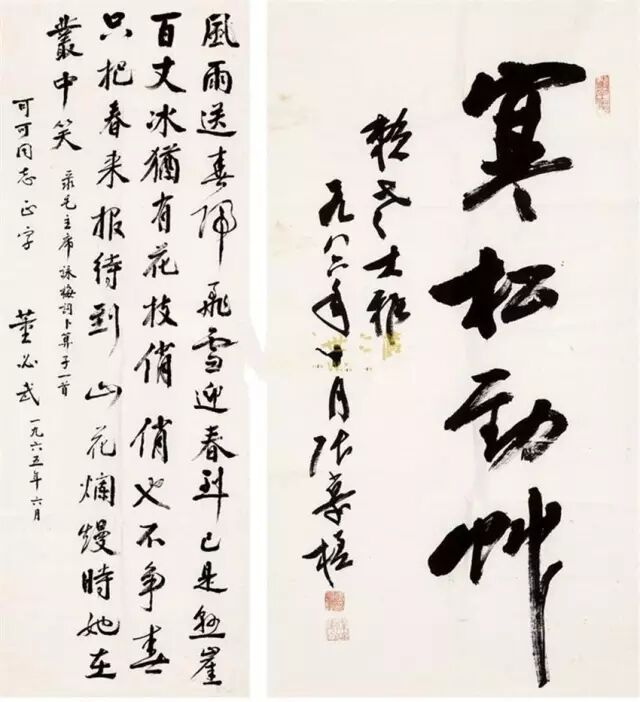 風雨送春歸飛雪迎春到已是懸崖
百丈冰猶有花枝俏俏也不争春
只把春来报待到山花爛熳時她在
叢中笑
录毛主席詠梅詞卜算子一首
可可同志正字
董必武 一九六五年六月
寒松勁艸
大雅
一九八二年十月张慕槎